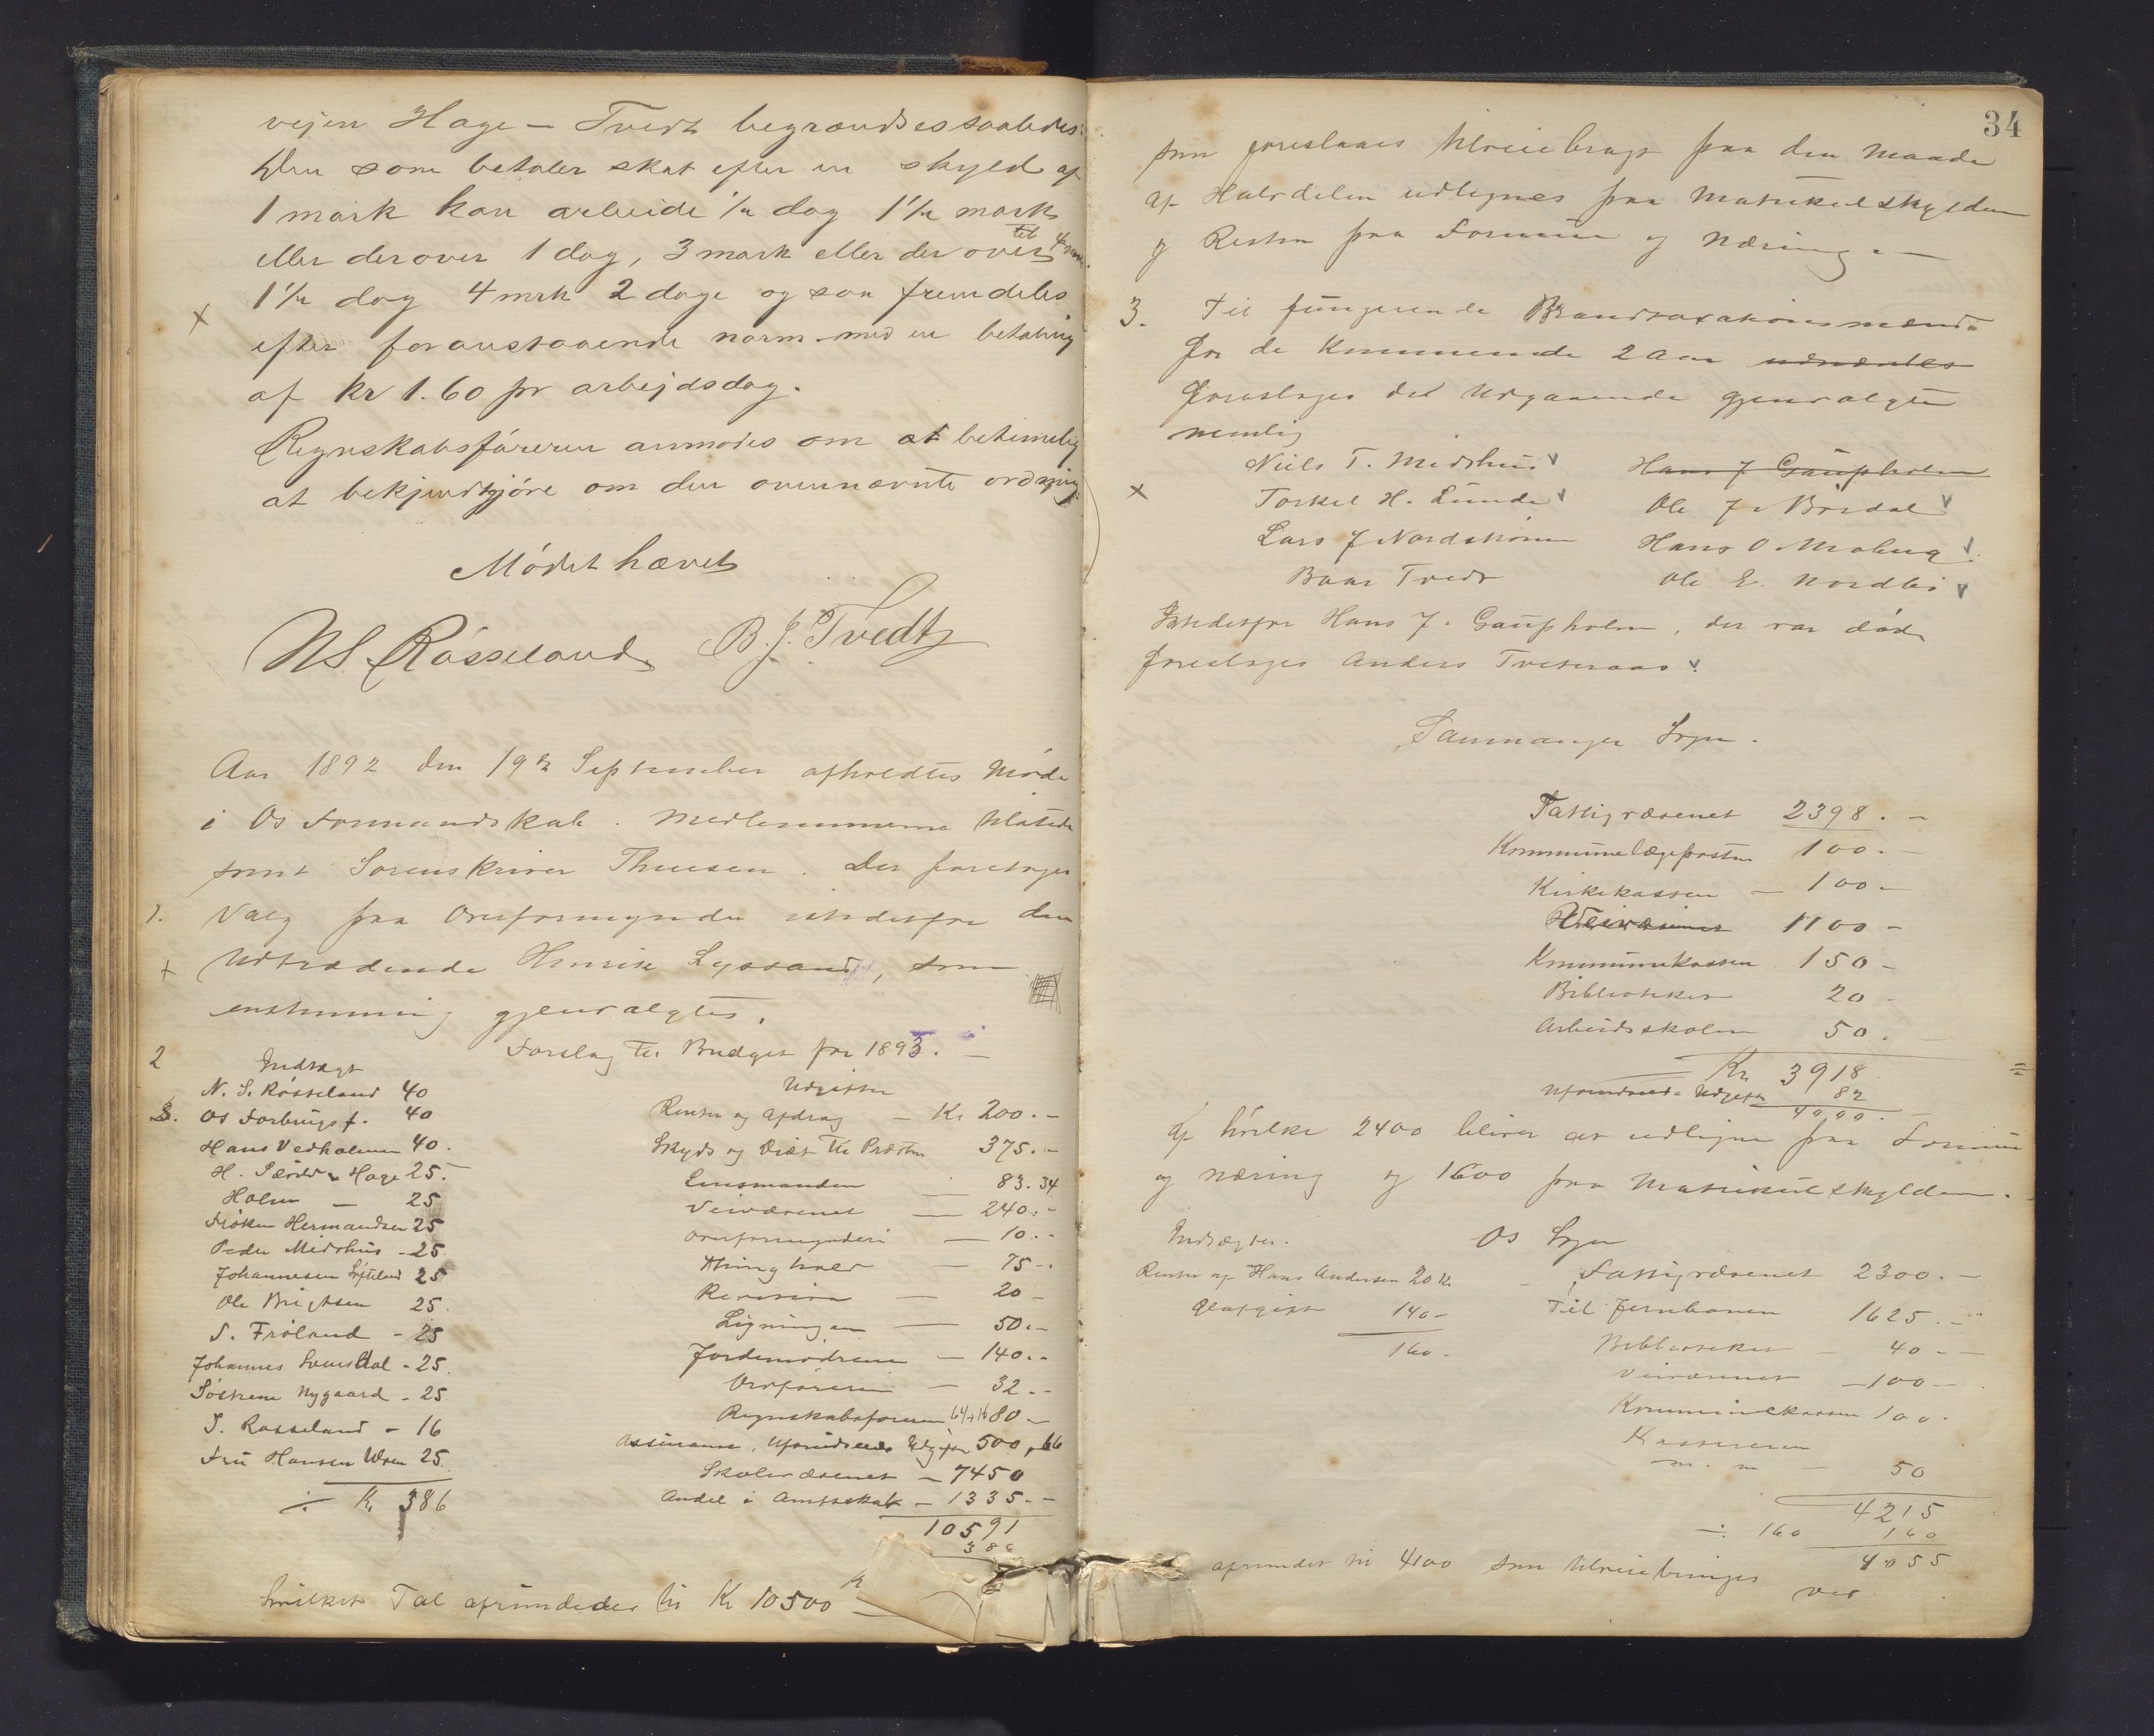 vejen Hage – Tvedt begrændses saaledes:
Den som betaler skat efter en skyld af
1 mark kan arbeide ½ dag 1½ mark
eller derover 1 dag, 3 mark eller der over til 4 mrk.
1½ dag 4 mrk 2 dage og saa fremdeles
efter foranstaaende norm med en betaling
af kr 1.60 pr arbejdsdag.
Regnskabsføreren anmodes om at betimelig
at bekjendtgjøre om den ovennævnte ordning
Mødet hævet
NS. Røsseland B. J. Tvedt
Aar 1892 den 19de September afholdtes Møde
i Os Formandskab. Medlemmerne tilstede
samt Sorenskriver Thuesen. Der foretoges
1. Valg paa Overformynder istedetfor den
Udtrædende Henrik Lyssand, som
enstemmig gjenvalgtes.
2 Forslag til Budget for 1893. –
Indtægt
N. S. Røsseland 40
3. Os Forbrugsf. 40
Hans Vedholmen 40.
H. Hage 25.
Holm – 25
Frøken Hermandsen 25
Peder Midthus - 25.
Johannesen 25
Ole Brigtsen 25.
S. Frøland - 25
Johannes Svendal - 25.
Søstrene Nygaard - 25
S. Rosseland - 16
Fru Hansen Uren 25.
÷ Kr 386
Udgifter
Renter og Afdrag – Kr 200. –
Skyds og Diæt til Præsten 375. –
Lensmanden – 83.34
Veivæsenet – 240. –
Overformynderi – 10. –
Thinghold – 75 –
Revision – 20 –
Ligningen – 50. –
Jordemødrene – 140. –
Ordføreren – 32. –
Regnskabsføreren 64+16 80 –
Assurance, Uforudseede Udgifter 500,66
Skolevæsenet – 7450
Andel i Amtsskat – 1335. –
10591
386
hvilket Tal afrundedes til Kr 10500
34
som foreslaaes tilveiebragt paa den Maade
at Halvdelen udlignes paa Matrikulskylden
og Resten paa Formue og Næring. –
3. Til fungerende Brandtaxationsmænd
for de kommende 2 Aar udnævntes
foreslages det Udgaaende gjenvalgte
nemlig
Niels T. Midthus Hans J Gaupholm
Torkel H. Lunde Ole J. Børdal
Lars J Nordstrønen Hans O. Moberg
Baar Tvedt Ole E. Nordbø
Istedetfor Hans J. Gaupholm, der var død
foreslages Anders Tveteraas.
Sammanger Sogn.
Fattigvæsenet 2398. –
Kommunelægeposten 100. –
Kirkekassen – 100 –
Veivæsenet 1100 –
Kommunekassen 150 –
Bibliotheket 20 –
Arbeidsskolen 50. –
Kr 3918
Uforudseede Udgifter 82
4000. –
Af hvilke 2400 bliver at udligne paa Formue
og Næring og 1600 paa Matrikulskylden.
Os Sogn
Indtægter.
Renter af Hans Andersen 20 Kr.
140 –
160 –
Fattigvæsenet 2300. –
Til Jernbanen 1625. –
Bibliotheket – 40 –
Veivæsenet – 100 –
Kommunekassen 100.
Kassereren
m. m – 50
4215
÷ 160 160
4055
afrundet til 4100 som tilveiebringes
ved